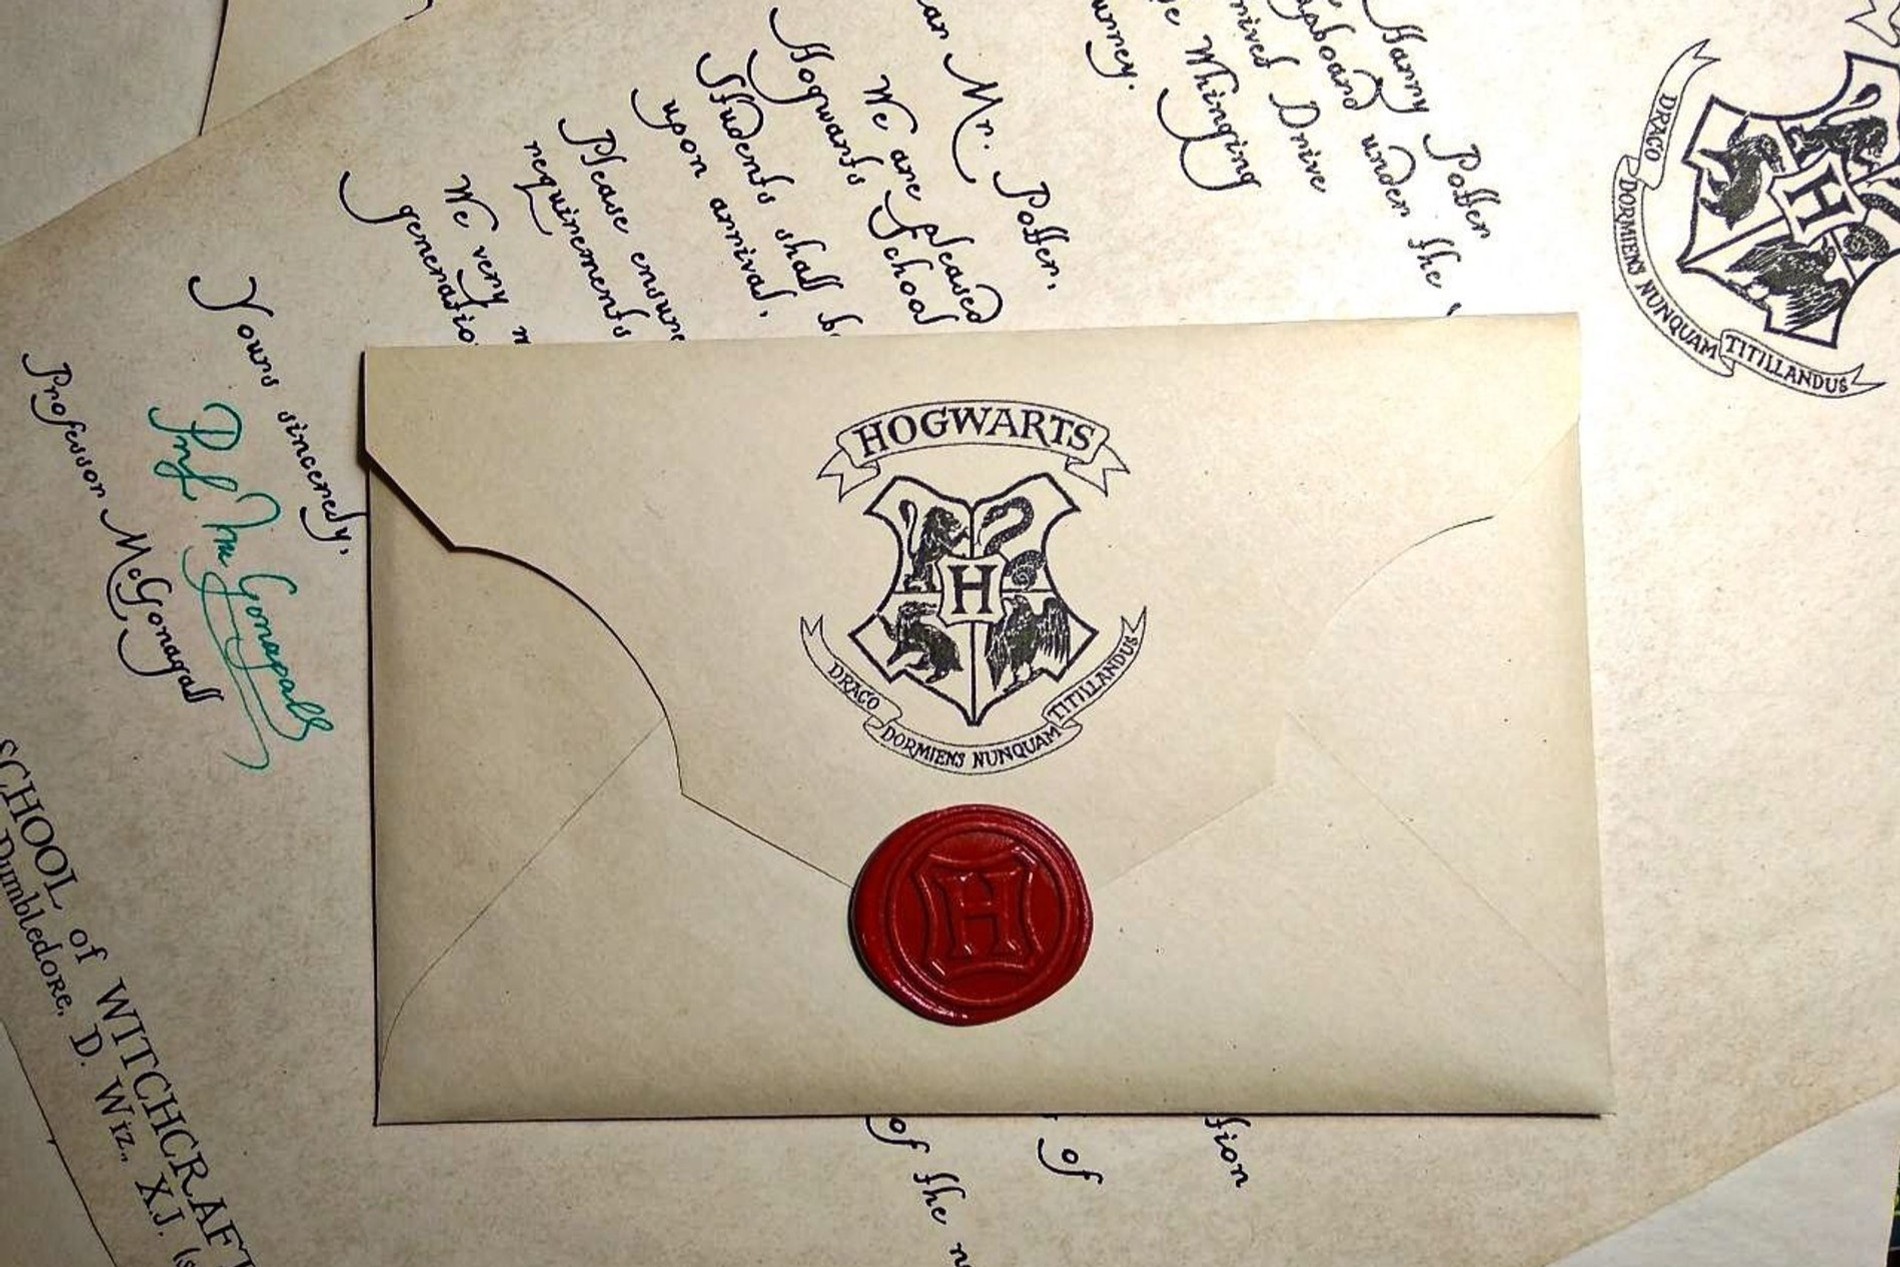 Harry Potter
under the
Drive
Whinging
Mr. Potter,
We are pleased
Hogwarts School
Students shall
upon arrival,
Please ensure
requirements
We very
Yours sincerely,
Prof McGonagall
Professor McGonagall
SCHOOL of WITCHCRAFT
Dumbledore, D. Wiz., X.J.
HOGWARTS
H
DRACO DORMIENS NUNQUAM TITILLANDUS
H
H
DRACO DORMIENS NUNQUAM TITILLANDUS
of the
of